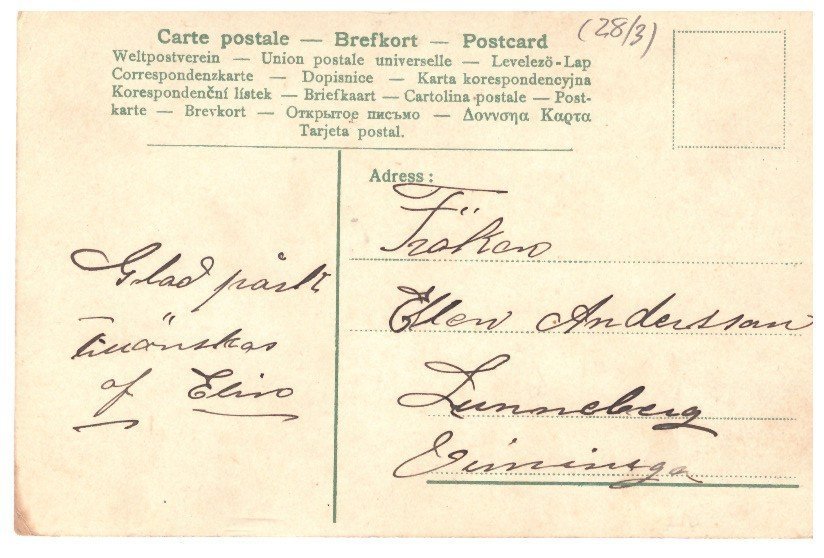 Carte postale — Brefkort — Postcard
(28/3)
Weltpostverein — Union postale universelle — Levelező-Lap
Correspondenzkarte — Dopisnice — Karta korespondencyjna
Korespondenční lístek — Briefkaart — Cartolina postale — Post-
karte — Brevkort — Открытое письмо — Δοννσηα Καρτα
Tarjeta postal.
Adress:
Fröken
Ellen Andersson
Lunneberg
Glad påsk
tillönskas
af Elin